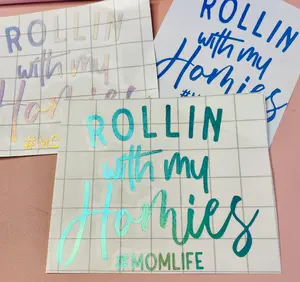 ROLLIN
with my
Homies
ROLLIN
with my
Homies
ROLLIN
with my
Homies
#MOMLIFE